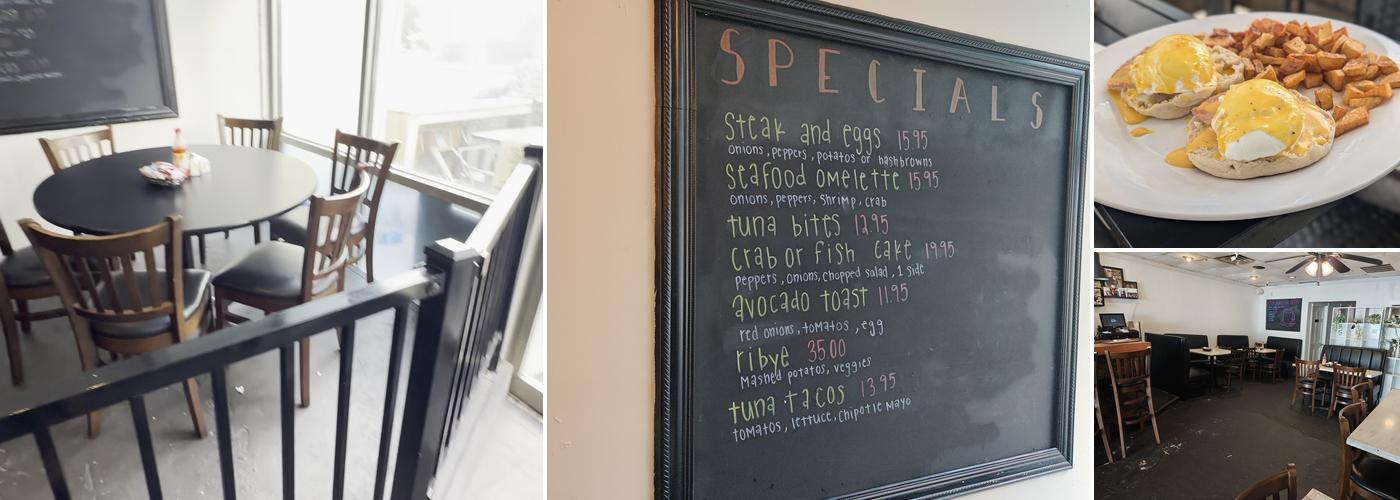 SPECIALS
Steak and eggs 15.95
onions, peppers, potatos or hashbrowns
Seafood omelette 15.95
onions, peppers, shrimp, crab
tuna bites 12.95
crab or fish cake 19.95
peppers, onions, chopped salad, 1 side
avocado toast 11.95
red onions, tomatos, egg
ribye 35.00
Mashed potatos, veggies
tuna tacos 13.95
tomatos, lettuce, chipotle Mayo